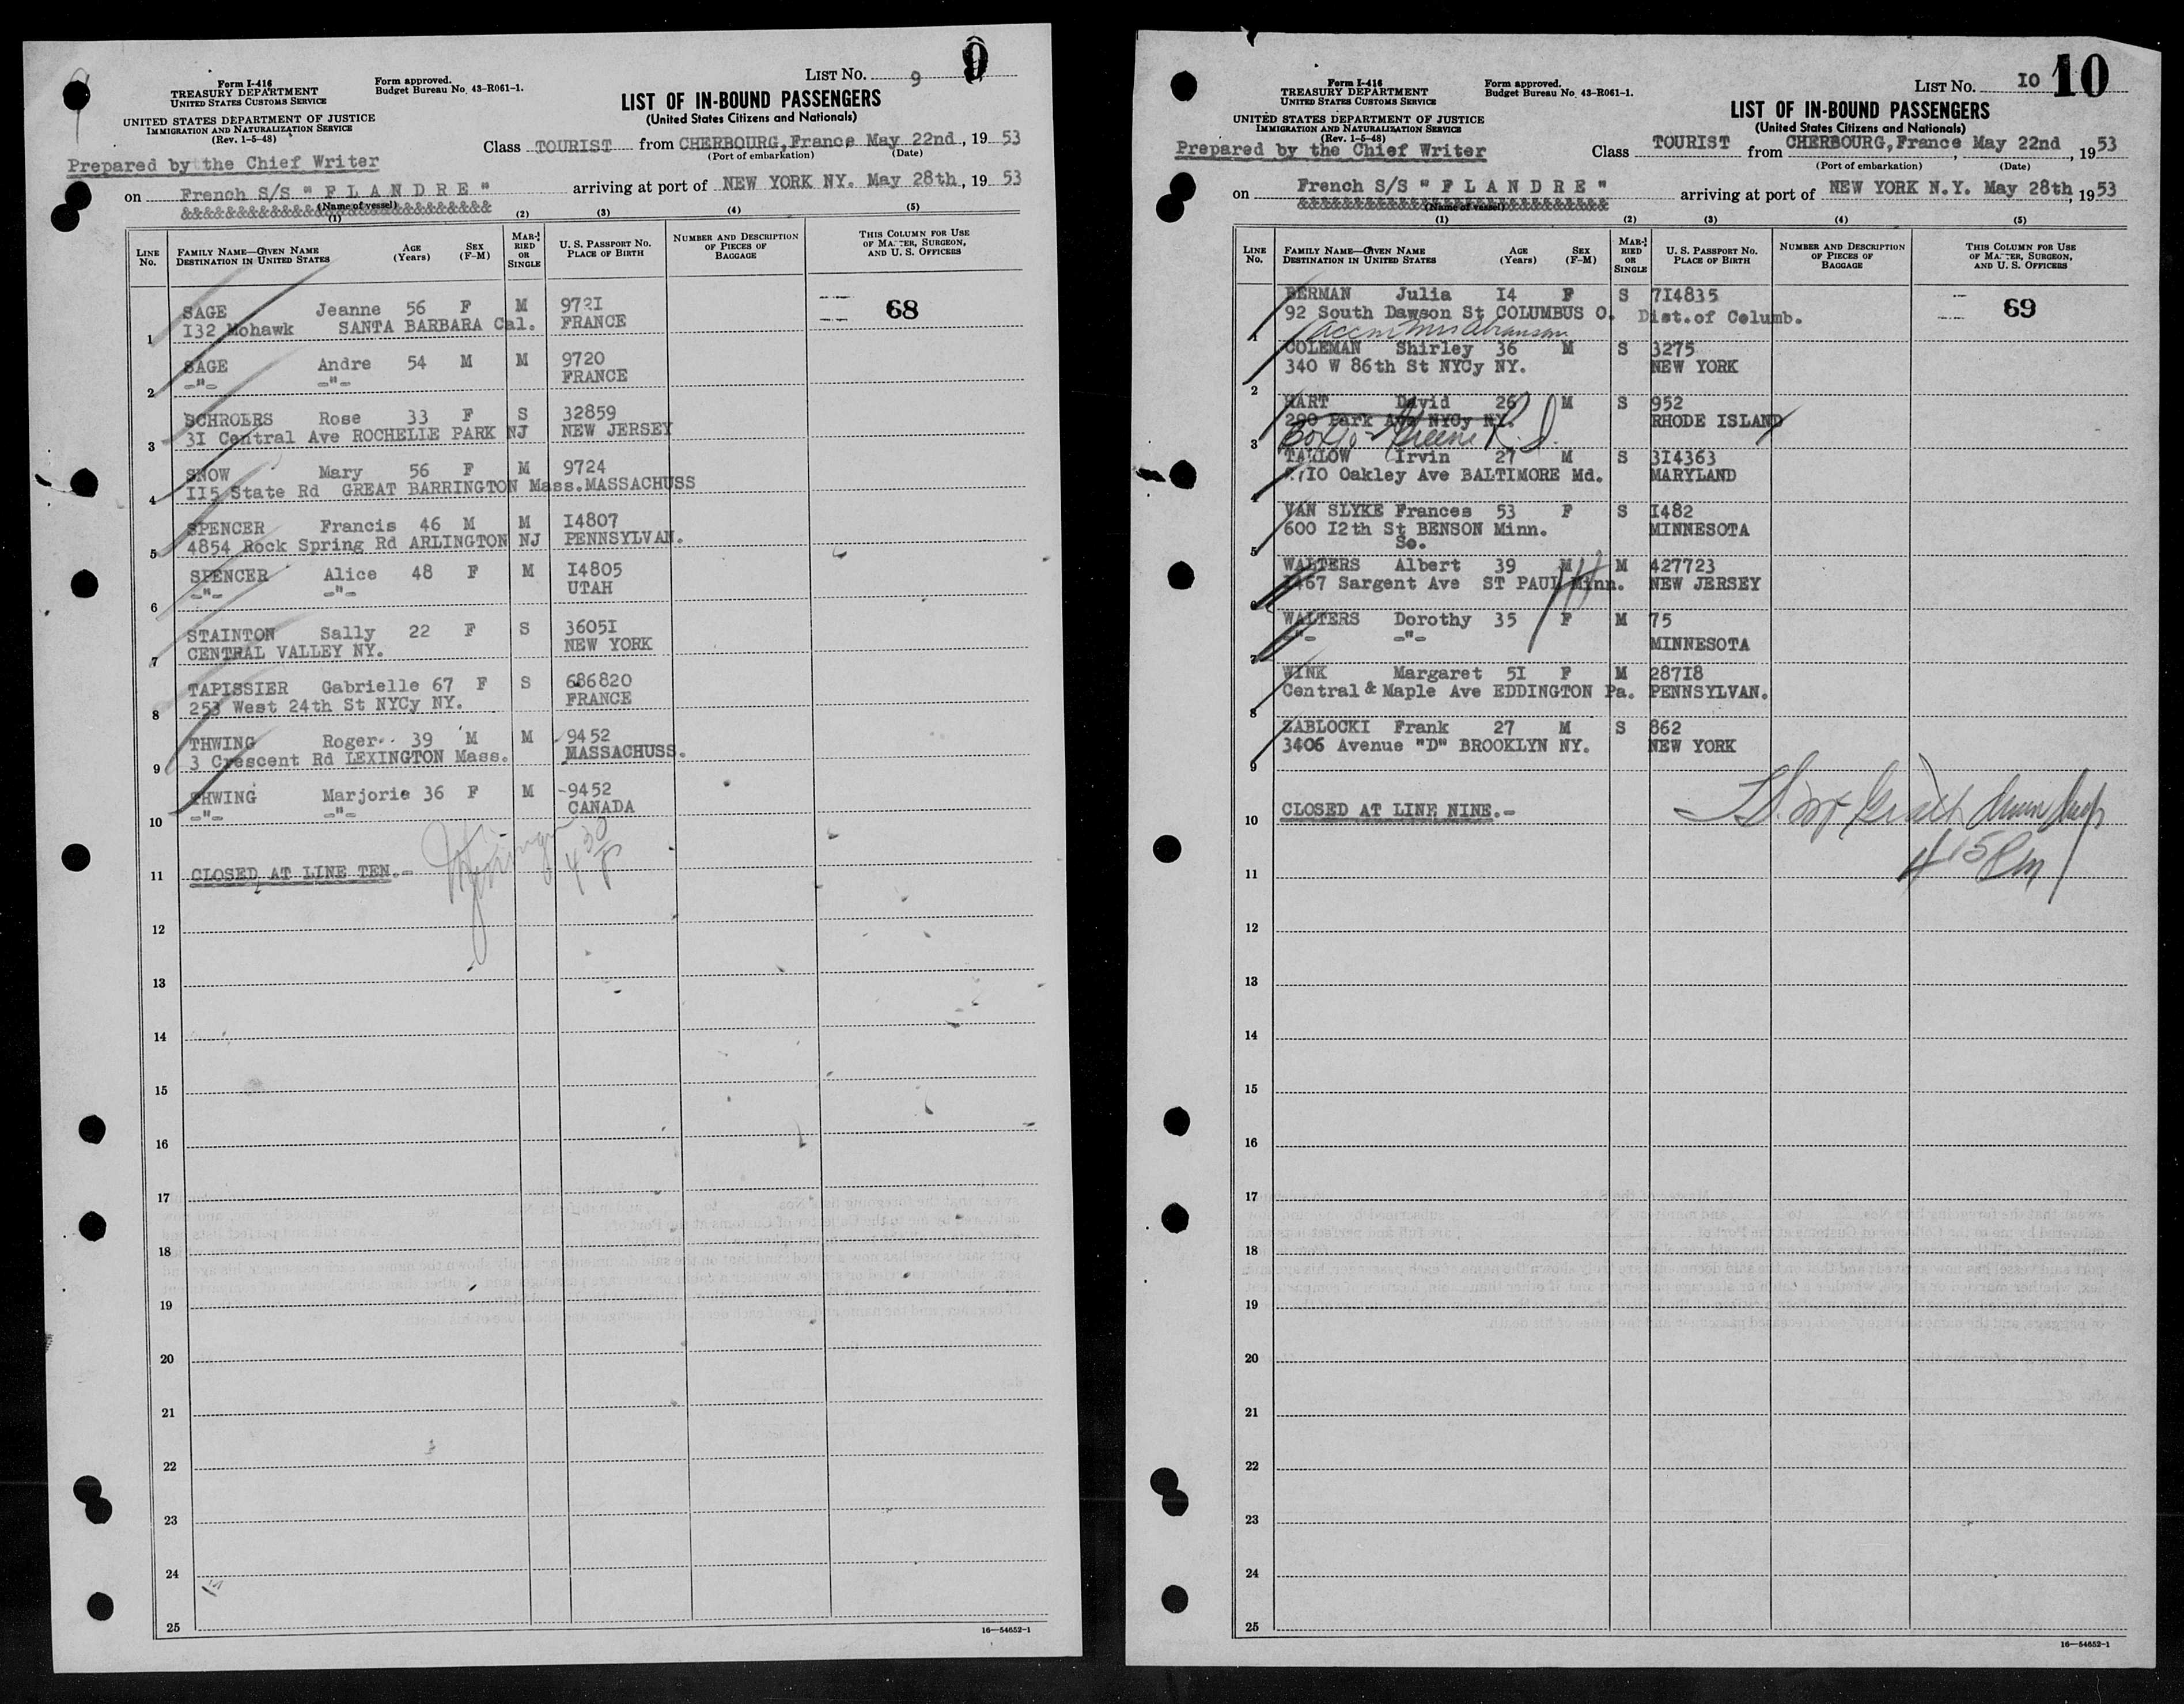 Form I-416
TREASURY DEPARTMENT
UNITED STATES CUSTOMS SERVICE
UNITED STATES DEPARTMENT OF JUSTICE
IMMIGRATION AND NATURALIZATION SERVICE
(Rev. 1-5-48)
Form approved.
Budget Bureau No. 43-R061-1.
LIST NO. 9 9
LIST OF IN-BOUND PASSENGERS
(United States Citizens and Nationals)
Prepared by the Chief Writer
Class TOURIST from CHERBOURG, France May 22nd, 19 53
(Port of embarkation) (Date)
on French S/S " F L A N D R E " arriving at port of NEW YORK NY. May 28th, 19 53
&&&&&&&&&&&&&&&&&&&&&&&&&&&&
(Name of vessel)
(1) (2) (3) (4) (5)
LINE No. FAMILY NAME—GIVEN NAME DESTINATION IN UNITED STATES AGE (Years) SEX (F-M) MARRIED OR SINGLE U. S. PASSPORT NO. PLACE OF BIRTH NUMBER AND DESCRIPTION OF PIECES OF BAGGAGE THIS COLUMN FOR USE OF MASTER, SURGEON, AND U. S. OFFICERS
SAGE Jeanne 56 F M 9721 68
1 I32 Mohawk SANTA BARBARA Cal. FRANCE
SAGE Andre 54 M M 9720
2 -"- -"- FRANCE
SCHROERS Rose 33 F S 32859
3 3I Central Ave ROCHELLE PARK NJ NEW JERSEY
SNOW Mary 56 F M 9724
4 II5 State Rd GREAT BARRINGTON Mass. MASSACHUSS
SPENCER Francis 46 M M I4807
5 4854 Rock Spring Rd ARLINGTON NJ PENNSYLVAN.
SPENCER Alice 48 F M I4805
6 -"- -"- UTAH
STAINTON Sally 22 F S 3605I
7 CENTRAL VALLEY NY. NEW YORK
TAPISSIER Gabrielle 67 F S 686820
8 253 West 24th St NYCy NY. FRANCE
THWING Roger 39 M M 9452
9 3 Crescent Rd LEXINGTON Mass. MASSACHUSS.
THWING Marjorie 36 F M -9452
10 -"- -"- CANADA
11 CLOSED AT LINE TEN.-
4 30 P
12
13
14
15
16
17
18
19
20
21
22
23
24
25
16—54652-1
Form I-416
TREASURY DEPARTMENT
UNITED STATES CUSTOMS SERVICE
UNITED STATES DEPARTMENT OF JUSTICE
IMMIGRATION AND NATURALIZATION SERVICE
(Rev. 1-5-48)
Form approved.
Budget Bureau No. 43-R061-1.
LIST NO. IO 10
LIST OF IN-BOUND PASSENGERS
(United States Citizens and Nationals)
Prepared by the Chief Writer
Class TOURIST from CHERBOURG, France, May 22nd, 19 53
(Port of embarkation) (Date)
on French S/S " F L A N D R E " arriving at port of NEW YORK N.Y. May 28th, 19 53
&&&&&&&&&&&&&&&&&&&&&&&&&&&&
(Name of vessel)
(1) (2) (3) (4) (5)
LINE No. FAMILY NAME—GIVEN NAME DESTINATION IN UNITED STATES AGE (Years) SEX (F-M) MARRIED OR SINGLE U. S. PASSPORT NO. PLACE OF BIRTH NUMBER AND DESCRIPTION OF PIECES OF BAGGAGE THIS COLUMN FOR USE OF MASTER, SURGEON, AND U. S. OFFICERS
BERMAN Julia I4 F S 7I4835 69
92 South Dawson St COLUMBUS O. Dist.of Columb.
1 accm Mrs Abramson
COLEMAN Shirley 36 M S 3275
340 W 86th St NYCy NY. NEW YORK
2
HART David 26 M S 952
290 Park Ave NYCy NY. RHODE ISLAND
3 Box 10 - Greene R.I.
TARLOW Irvin 27 M S 3I4363
4 10 Oakley Ave BALTIMORE Md. MARYLAND
VAN SLYKE Frances 53 F S I482
600 I2th St BENSON Minn. MINNESOTA
5 So.
WALTERS Albert 39 M M 427723
6 467 Sargent Ave ST PAUL Minn. NEW JERSEY
WALTERS Dorothy 35 F M 75
7 -"- -"- MINNESOTA
WINK Margaret 5I F M 287I8
8 Central & Maple Ave EDDINGTON Pa. PENNSYLVAN.
ZABLOCKI Frank 27 M S 862
9 3406 Avenue "D" BROOKLYN NY. NEW YORK
10 CLOSED AT LINE NINE.-
4 15 Pm
11
12
13
14
15
16
17
18
19
20
21
22
23
24
25
16—54652-1